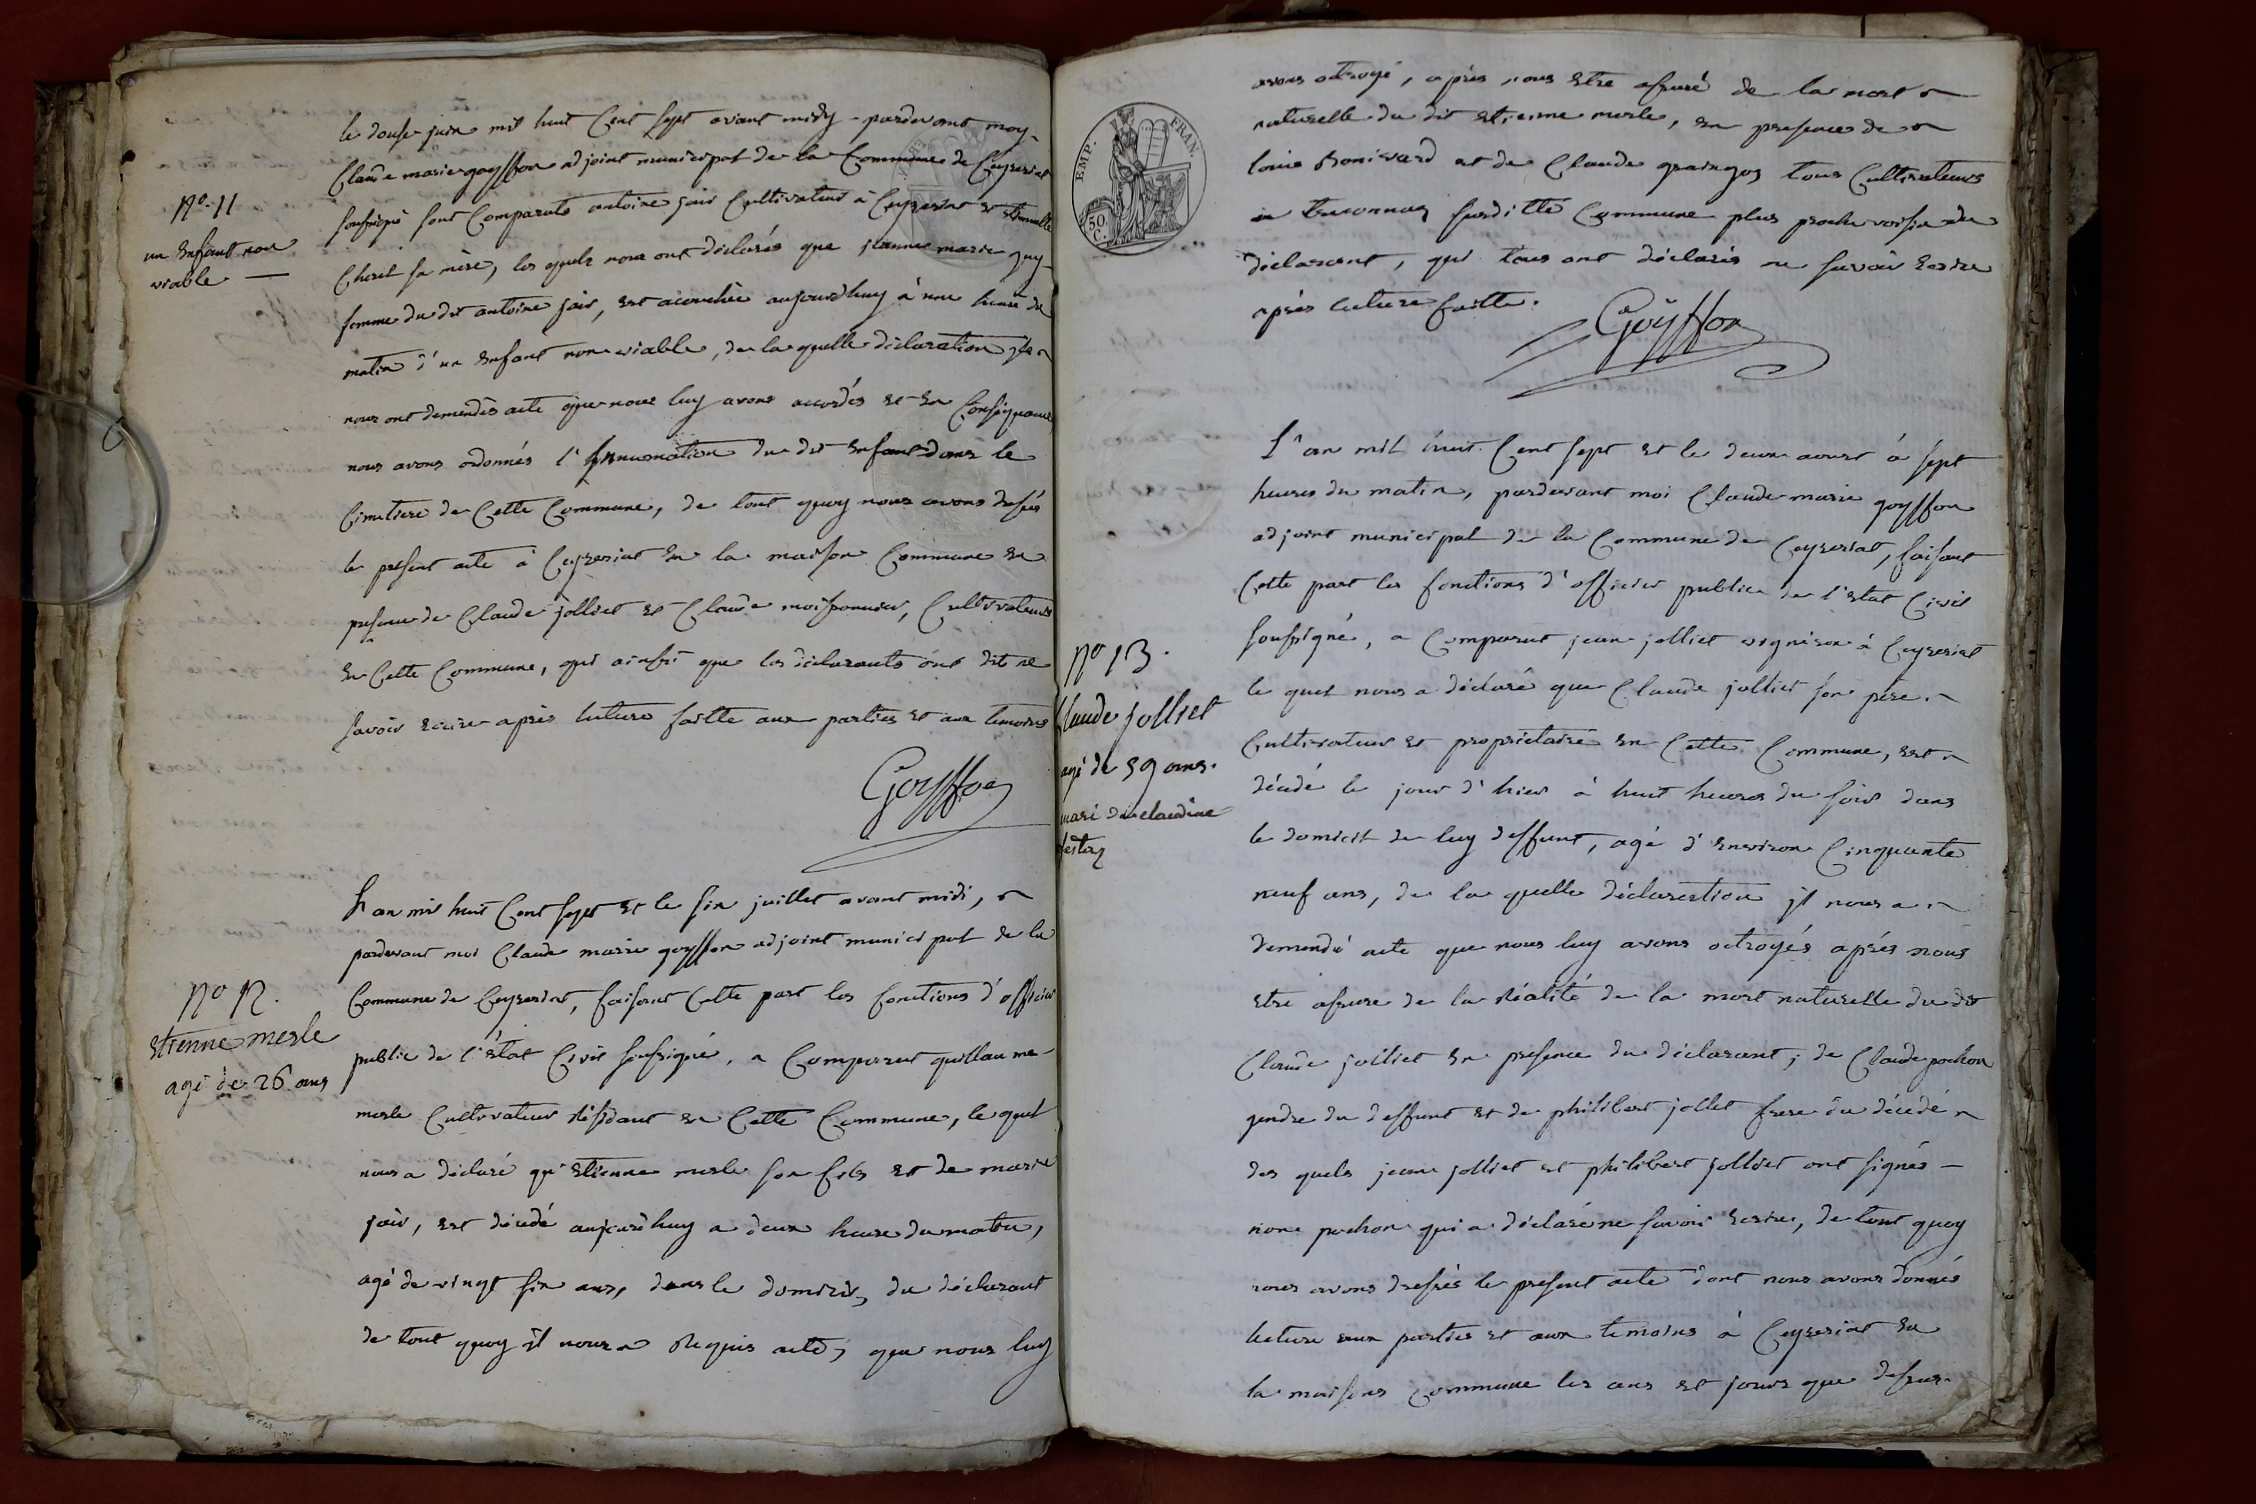 le douse juin mil huit Cent sept avant midy pardevant moy
Claude marie goyffon adjoint municipal de la Commune de Ceyseriat
soussigné sont Comparuts antoine jair Cultivateur à Ceyseriat et
sa mère, les quels nous ont déclarés que jeanne marie guy-
femme du dit antoine jair, est acouchée aujourdhuy à une heure du
matin d'un Enfant non viable, de la quelle déclaration ils
nous ont demendés acte que nous luy avons accordés et En Conséquance
nous avons ordonnés l'hinumation du dit Enfant dans le
Cimetiere de Cette Commune, de tout quoy nous avons dressés
le présent acte à Ceyseriat En la maison Commune En
présence de Claude jolliet et Claude moissonnier, Cultivateurs
En Cette Commune, qui ainsi que les déclarants ont dit ne
savoir écrire après lecture faitte aux parties et aux temoins
Goyffon
N° 11
un Enfant non
viable —
L'an mil huit Cent sept et le six juillet avant midi,
pardevant moi Claude marie goyffon adjoint municipal de la
Commune de Ceyseriat, faisant Cette part les fonctions d'officier
public de l'état Civil soussigné, a Comparut guillau me
merle Cultivateur résidant En Cette Commune, le quel
nous a déclaré qu'Etienne merle son fils et de marie
jair, est décédé aujourdhuy a deux heure du matin,
agé de vingt six ans, dans le domicile du déclarant
de tout quoy il nous a Requis acte, que nous luy
N° 12.
Etienne merle
agé de 26 ans
EMP. FRAN.
50 C.
avons octroyé, après nous Etre assuré de la mort
naturelle du dit Etienne merle, En presence de
louis Bonivard et de Claude graingoy tous Cultivateurs
susditte Commune plus proche voisin du
déclarant, qui tous ont déclarés ne savoir Ecrire
après lecture faitte.
Goyffon
L'an mil huit Cent sept et le deux aoust à sept
heures du matin, pardevant moi Claude marie goyffon
adjoint municipal de la Commune de Ceyseriat, faisant
Cette part les fonctions d'officier public de l'Etat Civil
soussigné, a Comparut jean jolliet vigneron à Ceyseriat
le quel nous a déclaré que Claude jolliet son père
Cultivateur et propriétaire En Cette Commune, est
décédé le jour d'hier à huit heures du soir dans
le domicil de luy deffunt, agé d'Environ Cinquante
neuf ans, de la quelle déclaration il nous a
demendé acte que nous luy avons octroyés après nous
Etre assure de la Réalité de la mort naturelle du dit
Claude jolliet En presence du déclarant, de Claude pochon
gendre du deffunt et de philibert jollet frere du décédé
des quels jean jolliet et philibert jolliet ont signés —
non pochon qui a déclaré ne savoir Ecrire, de tout quoy
nous avons dressés le present acte dont nous avons donnés
lecture aux parties et aux temoins à Ceyseriat En
la maison commune les ans et jours que dessus.
N° 13.
Claude jolliet
agé de 59 ans.
mari de claudine